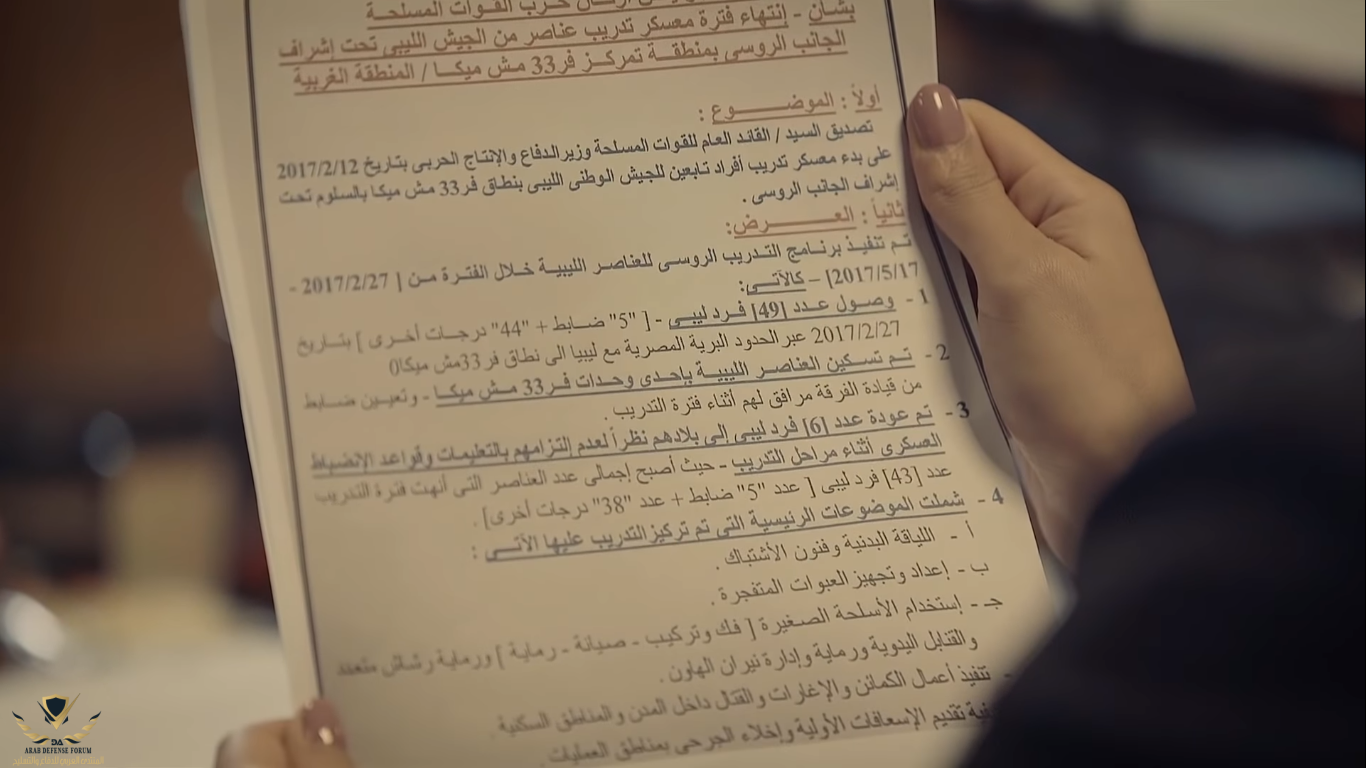 أركان حرب القوات المسلحة
بشأن - إنتهاء فترة معسكر تدريب عناصر من الجيش الليبى تحت إشراف
الجانب الروسى بمنطقة تمركز فر33 مش ميكا / المنطقة الغربية
أولاً : الموضوع :
تصديق السيد / القائد العام للقوات المسلحة وزير الدفاع والإنتاج الحربى بتاريخ 2017/2/12
على بدء معسكر تدريب أفراد تابعين للجيش الوطنى الليبى بنطاق فر33 مش ميكا بالسلوم تحت
إشراف الجانب الروسى .
ثانياً : العرض:
تم تنفيذ برنامج التدريب الروسى للعناصر الليبية خلال الفترة من [ 2017/2/27 -
2017/5/17] – كالآتى:
1 - وصول عدد [49] فرد ليبى - [ "5" ضابط + "44" درجات أخرى ] بتاريخ
2017/2/27 عبر الحدود البرية المصرية مع ليبيا الى نطاق فر33مش ميكا()
2 - تم تسكين العناصر الليبية بإحدى وحدات فر33 مش ميكا - وتعيين ضابط
من قيادة الفرقة مرافق لهم أثناء فترة التدريب .
3 - تم عودة عدد [6] فرد ليبى إلى بلادهم نظراً لعدم إلتزامهم بالتعليمات وقواعد الإنضباط
العسكرى أثناء مراحل التدريب - حيث أصبح إجمالى عدد العناصر التى أنهت فترة التدريب
عدد [43] فرد ليبى [ عدد "5" ضابط + عدد "38" درجات أخرى] .
4 - شملت الموضوعات الرئيسية التى تم تركيز التدريب عليها الآتى :
أ - اللياقة البدنية وفنون الأشتباك .
ب - إعداد وتجهيز العبوات المتفجرة .
جـ - إستخدام الأسلحة الصغيرة [ فك وتركيب - صيانة - رماية ] ورماية رشاش متعدد
والقنابل اليدوية ورماية وإدارة نيران الهاون .
- تنفيذ أعمال الكمائن والإغارات والقتال داخل المدن والمناطق السكنية .
تقديم الإسعافات الأولية وإخلاء الجرحى بمناطق العمليات .
DA
ARAB DEFENSE FORUM
المنتدى العربي للدفاع والتسليح